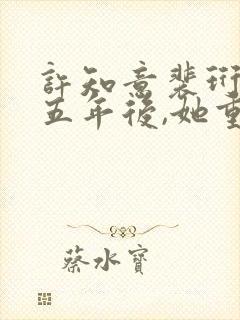 許知意裴珩
五年後,她重
蔡水寶